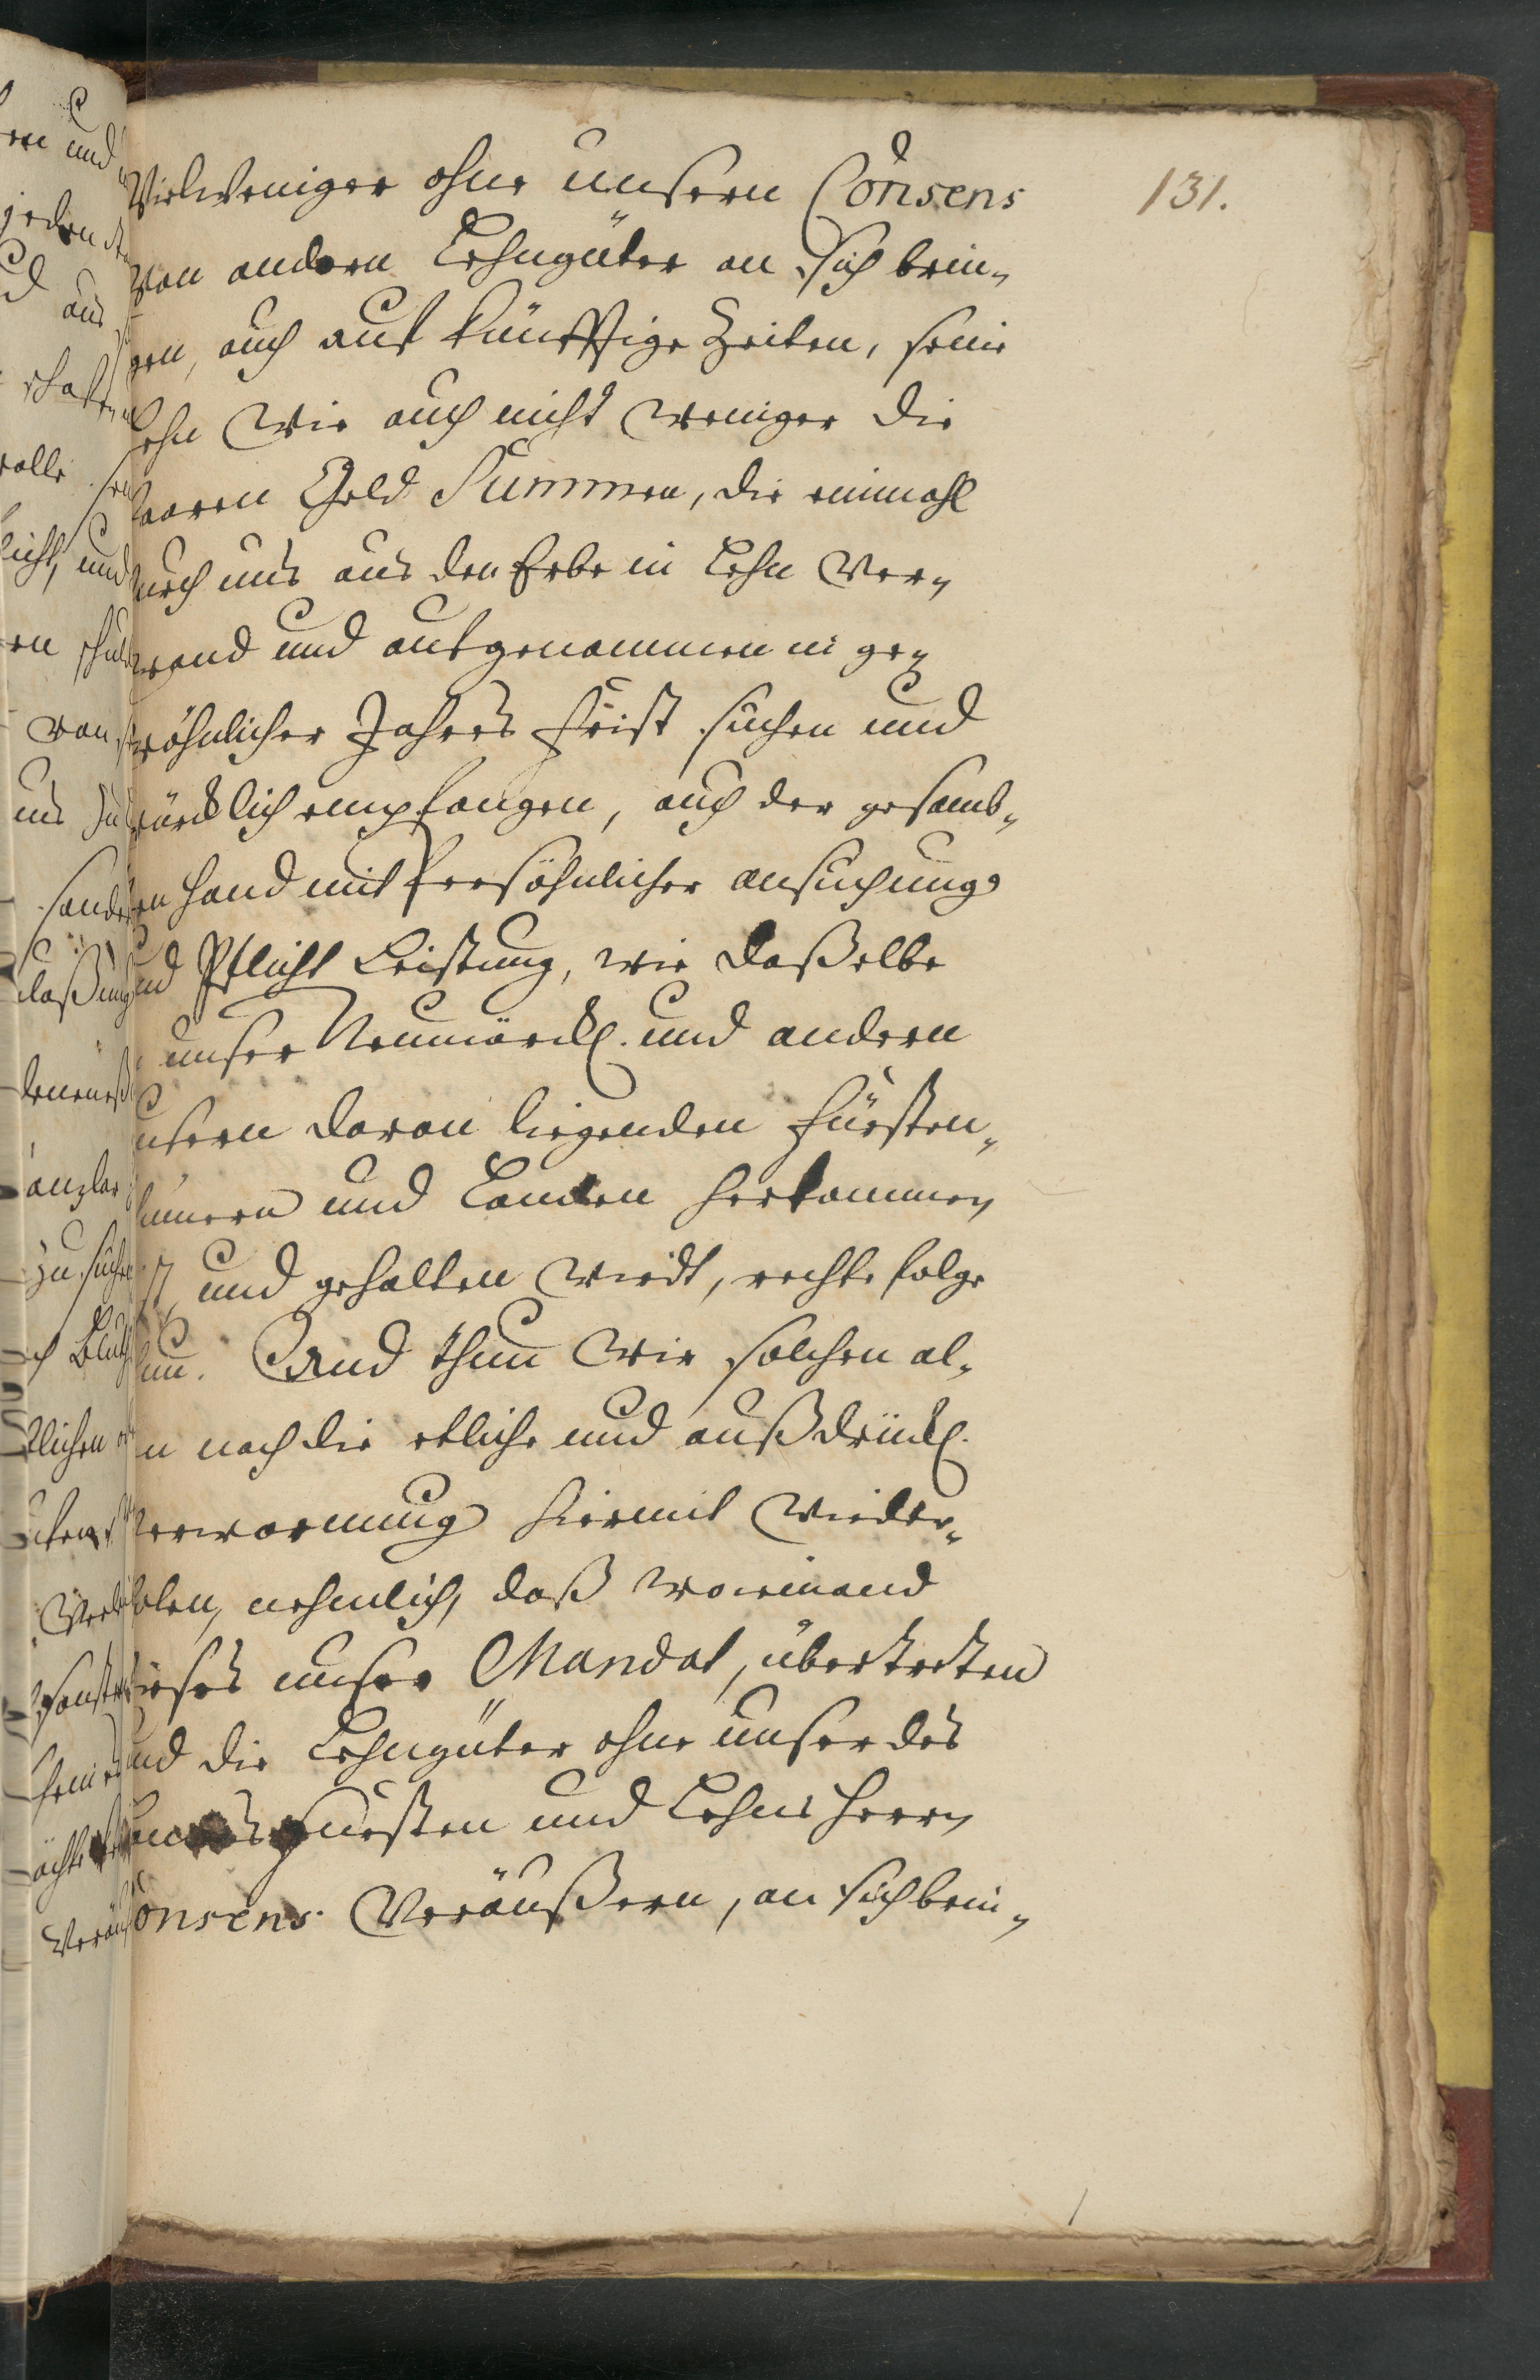 131.
Vielweniger ohne unsern Consens
Von andern Lehngüter an sich brin„
gen, auch auf künfftige Zeiten, seine
Lehn wie auch nicht weniger die
baaren Geld Summen, die einmahl
durch uns aus den Erbe in Lehn Ver„
wand und aufgenommen in ge„
wöhnlicher Jahres Frist suchen und
würcklich empfangen, auch der gesamb„
ten Hand mit Persöhnlicher ansuchung
und Pflicht Leistung, wie daßelbe
unser Neumärckl. und andern
unsern daran liegenden Fürsten„
thümern und Landen herkommen
ist und gehalten wirdt, rechte folge
thun. Und thun wir solchen al„
n nach die etliche und außdrückl.
Verwarnung hiermit wieder„
holen, nehmlich, daß wo iemand
dieses unser Mandat, übertretten
und die Lehngüter ohne unser des
Landes Fürsten und Lehns Herrn
Consens Veräußern, an sich brin„